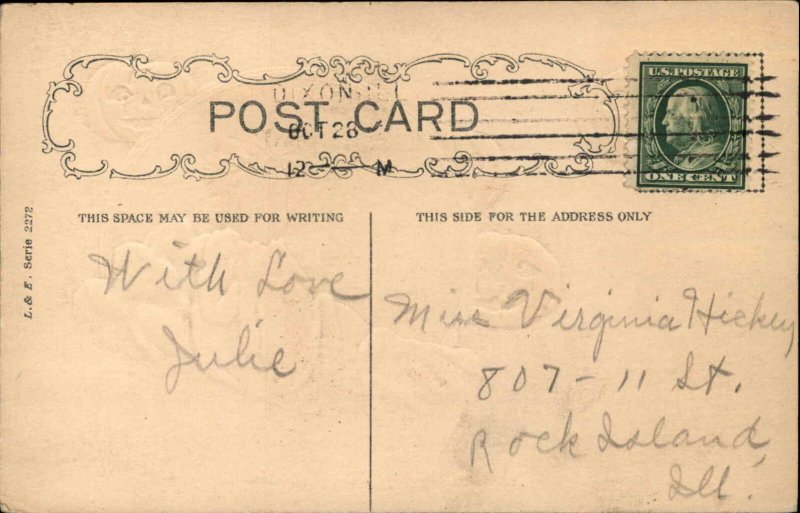 DIXON, ILL
POST CARD
OCT 28
12 M
U.S. POSTAGE
ONE CENT
THIS SPACE MAY BE USED FOR WRITING
THIS SIDE FOR THE ADDRESS ONLY
L. & E. Serie 2272
With Love
Julie
Miss Virginia Hickey
807-11 St.
Rock Island,
Ill.